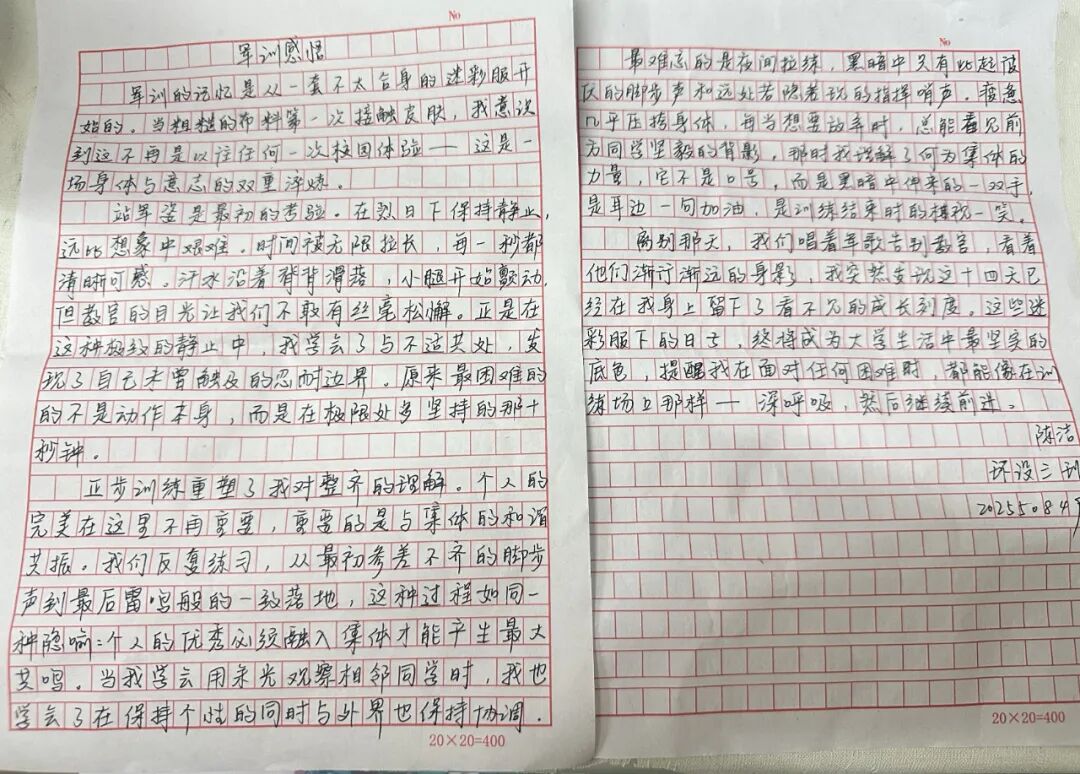 No
军训感悟
军训的记忆是从一套不太合身的迷彩服开
始的。当粗糙的布料第一次接触皮肤，我意识
到这不再是以往任何一次校园体验——这是一
场身体与意志的双重淬炼。
站军姿是最初的考验。在烈日下保持静止，
远比想象中艰难。时间被无限拉长，每一秒都
清晰可感。汗水沿着脊背滑落，小腿开始颤动，
但教官的目光让我们不敢有丝毫松懈。正是在
这种极致的静止中，我学会了与不适共处，发
现了自己未曾触及的忍耐边界。原来最困难的
的不是动作本身，而是在极限处多坚持的那十
秒钟。
正步训练重塑了我对整齐的理解。个人的
完美在这里不再重要，重要的是与集体的和谐
共振。我们反复练习，从最初参差不齐的脚步
声到最后雷鸣般的一致落地，这种过程如同一
种隐喻：个人的优秀必须融入集体才能产生最大
共鸣。当我学会用余光观察相邻同学时，我也
学会了在保持个性的同时与外界也保持协调。
20×20=400
No
最难忘的是夜间拉练，黑暗中只有此起彼
伏的脚步声和远处若隐若现的指挥哨声。疲惫
几乎压垮身体，每当想要放弃时，总能看见前
方同学坚毅的背影，那时我理解了何为集体的
力量，它不是口号，而是黑暗中伸来的一双手，
是耳边一句加油，是训练结束时的相视一笑。
离别那天，我们唱着军歌告别教官，看着
他们渐行渐远的身影，我突然发现这十四天已
经在我身上留下了看不见的成长刻度。这些迷
彩服下的日子，终将成为大学生活中最坚实的
底色，提醒我在面对任何困难时，都能像在训
练场上那样——深呼吸，然后继续前进。
陈洁
环设三班
20255084
20×20=400